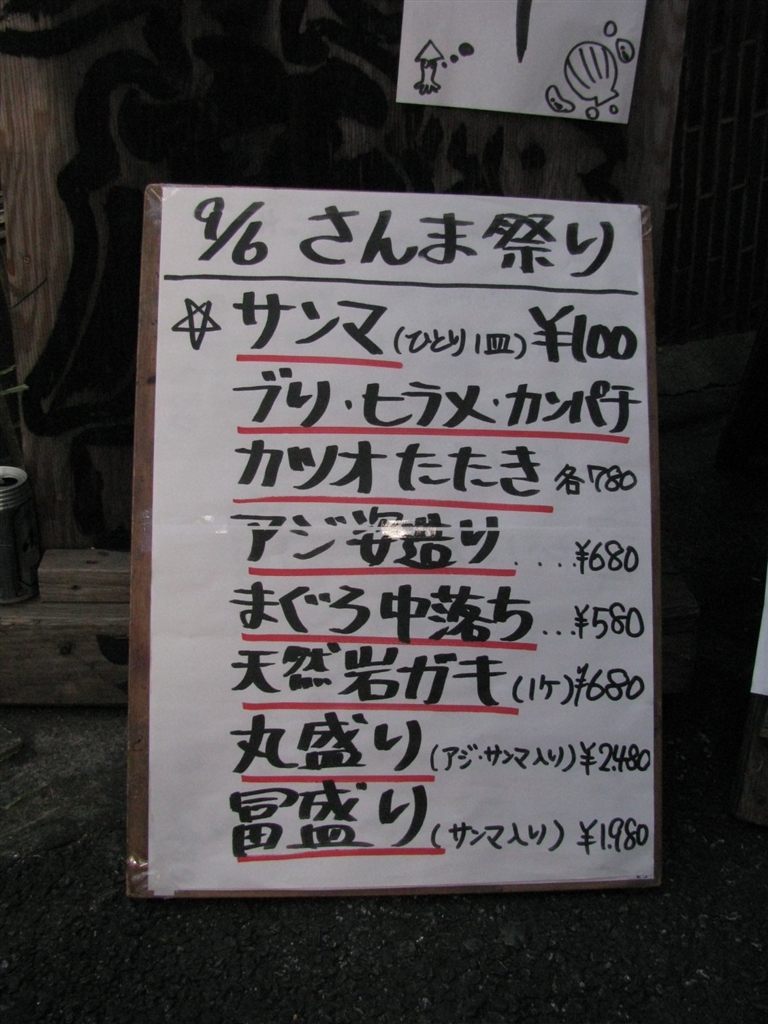 9/6 さんま祭り
☆ サンマ(ひとり1皿)¥100
ブリ・ヒラメ・カンパチ
カツオたたき 各780
アジ姿造り....¥680
まぐろ中落ち...¥580
天然岩ガキ(1ケ)¥680
丸盛り(アジ・サンマ入り)¥2.480
冨盛り(サンマ入り)¥1.980